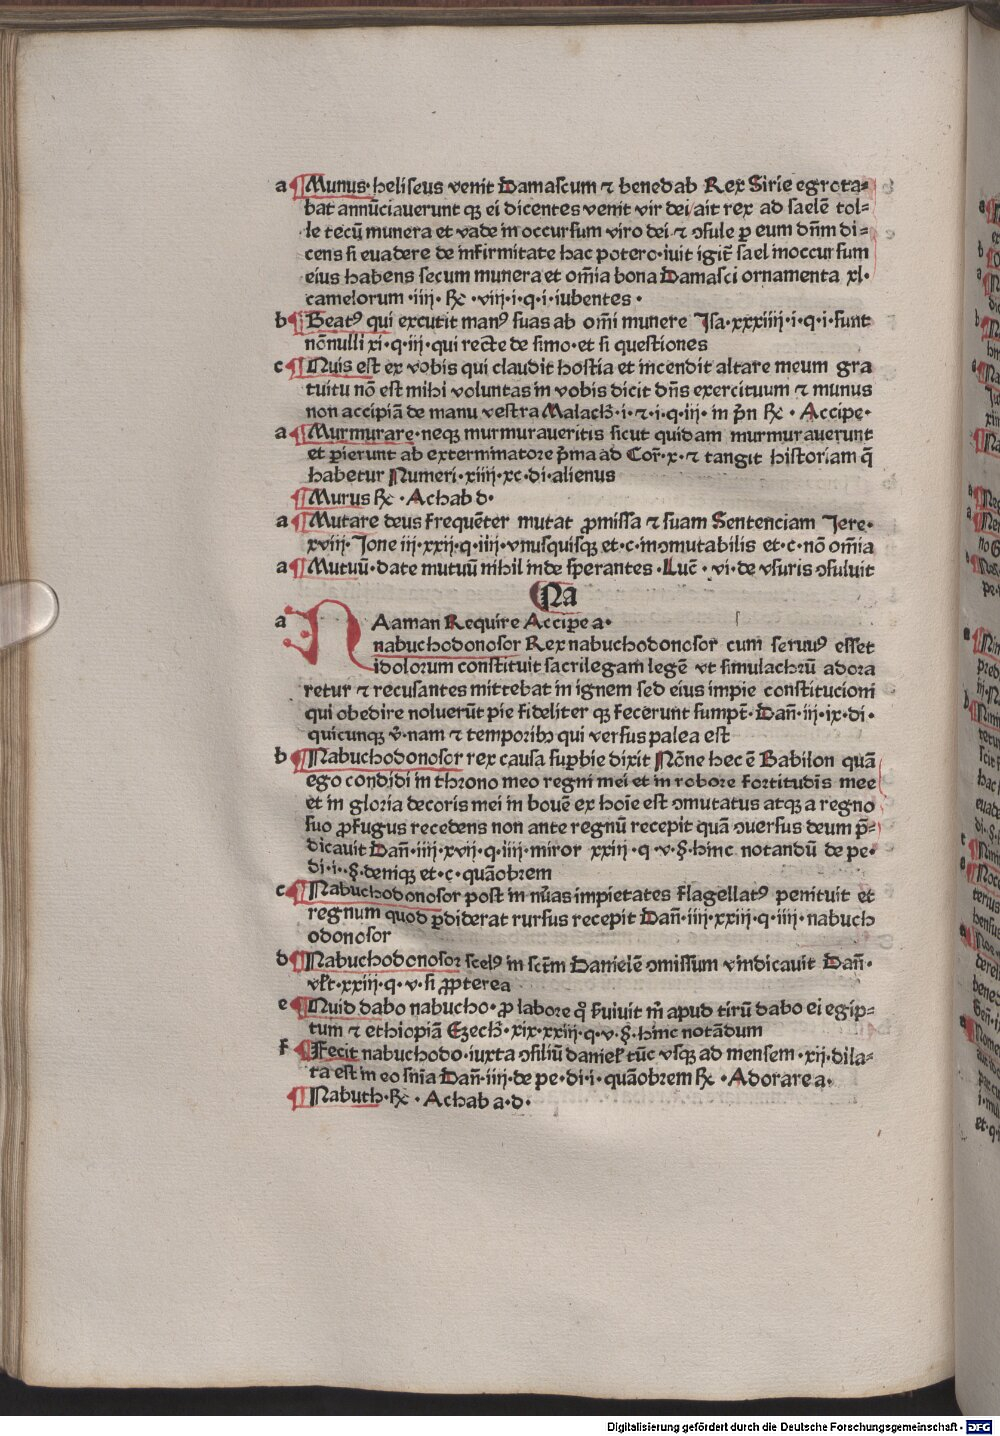 a ¶Munus·heliseus venit Damascum ⁊ benedab Rex Sirie egrota=
bat annūciaverunt qȝ ei dicentes venit vir dei ait rex ad saelē tol=
le tecū munera et vade in occursum viro dei ⁊ ɔsule ꝑ eum dn̄m di=
cens si evadere de infirmitate hac potero·ivit igit̄ sael inoccursum
eius habens secum munera et om̄ia bona Damasci ornamenta xl·
camelorum ·iiij· R̄c ·viij·i·q·i·iubentes·
b ¶Beatꝰ qui excutit manꝰ suas ab om̄i munere Jsa·xxxiiij·i·q·i·sunt
nōnulli xi·q·iij·qui recte de simo·et si questiones
c ¶Nuis est ex vobis qui claudit hostia et incendit altare meum gra
tuitu nō est mihi voluntas in vobis dicit dn̄s exercituum ⁊ munus
non accipiā de manu vestra Malach·i·⁊·i·q·iij· in p̄n R̄c · Accipe·
a ¶Murmurare·neqȝ murmuraveritis sicut quidam murmuraverunt
et ꝑierunt ab exterminatore p̄ma ad Cor̄·x·⁊ tangit historiam q̄
habetur Numeri·xiiij·xc·di·alienus
¶Murus R̄c ·Achab d·
a ¶Mutare deus frequēter mutat ꝓmissa ⁊ suam Sentenciam Jere·
xviij·Jone iij·xxij·q·iiij·vnusquisqȝ et·c·inɔmutabilis et·c·nō om̄ia
a ¶Mutuū·date mutuū nihil inde sperantes·Luc̄·vi·de vsuris ɔsuluit
Na
a NAaman Require Accipe a·
nabuchodonosor Rex nabuchodonosor cum servuꝰ esset
idolorum constituit sacrilegam legē vt simulachrū adora
retur ⁊ recusantes mittebat in ignem sed eius impie constitucioni
qui obedire noluerūt pie fideliter qȝ fecerunt sumpt̄·Dan̄·iij·ix·di·
quicunqȝ v̄·nam ⁊ temporibȝ qui versus palea est
b ¶Nabuchodonosor rex causa suꝑbie dixit Nōne hec ē Babilon quā
ego condidi in throno meo regni mei et in robore fortitudīs mee
et in gloria decoris mei in bouē ex hoīe est ɔmutatus atqȝ a regno
suo ꝓfugus recedens non ante regnū recepit quā ɔversus deum p̄=
dicavit Dan̄·iiij·xvij·q·iiij·miror xxiij·q·v·§·hinc notandū de pe·
di·i··§·deniqȝ et·c·quāobrem
c ¶Nabuchodonosor post in nūas impietates flagellatꝰ penituit et
regnum quod ꝑdiderat rursus recepit Dan̄·iiij·xxiij·q·iiij·nabuch
odonosor
d ¶Nabuchodonosor scelꝰ in sctm̄ Danielē ɔmissum vindicavit Dan̄·
vlt̄·xxiij·q·v·si ꝓpterea
e ¶Nuid dabo nabucho·ꝓ labore q̊ s̄uivit m̄ apud tirū dabo ei egip=
tum ⁊ ethiopiā Ezech·xix·xxiij·q·v·§·hinc notādum
f ¶Fecit nabuchodo·iuxta ɔsiliū daniel̄ tūc vsqȝ ad mensem·xij·dila=
ta est in eo sn̄ia Dan̄·iiij·de pe·di·i·quāobrem R̄c ·Adorare a·
¶Nabuth·R̄c ·Achab a·d·
Digitalisierung gefördert durch die Deutsche Forschungsgemeinschaft - DFG